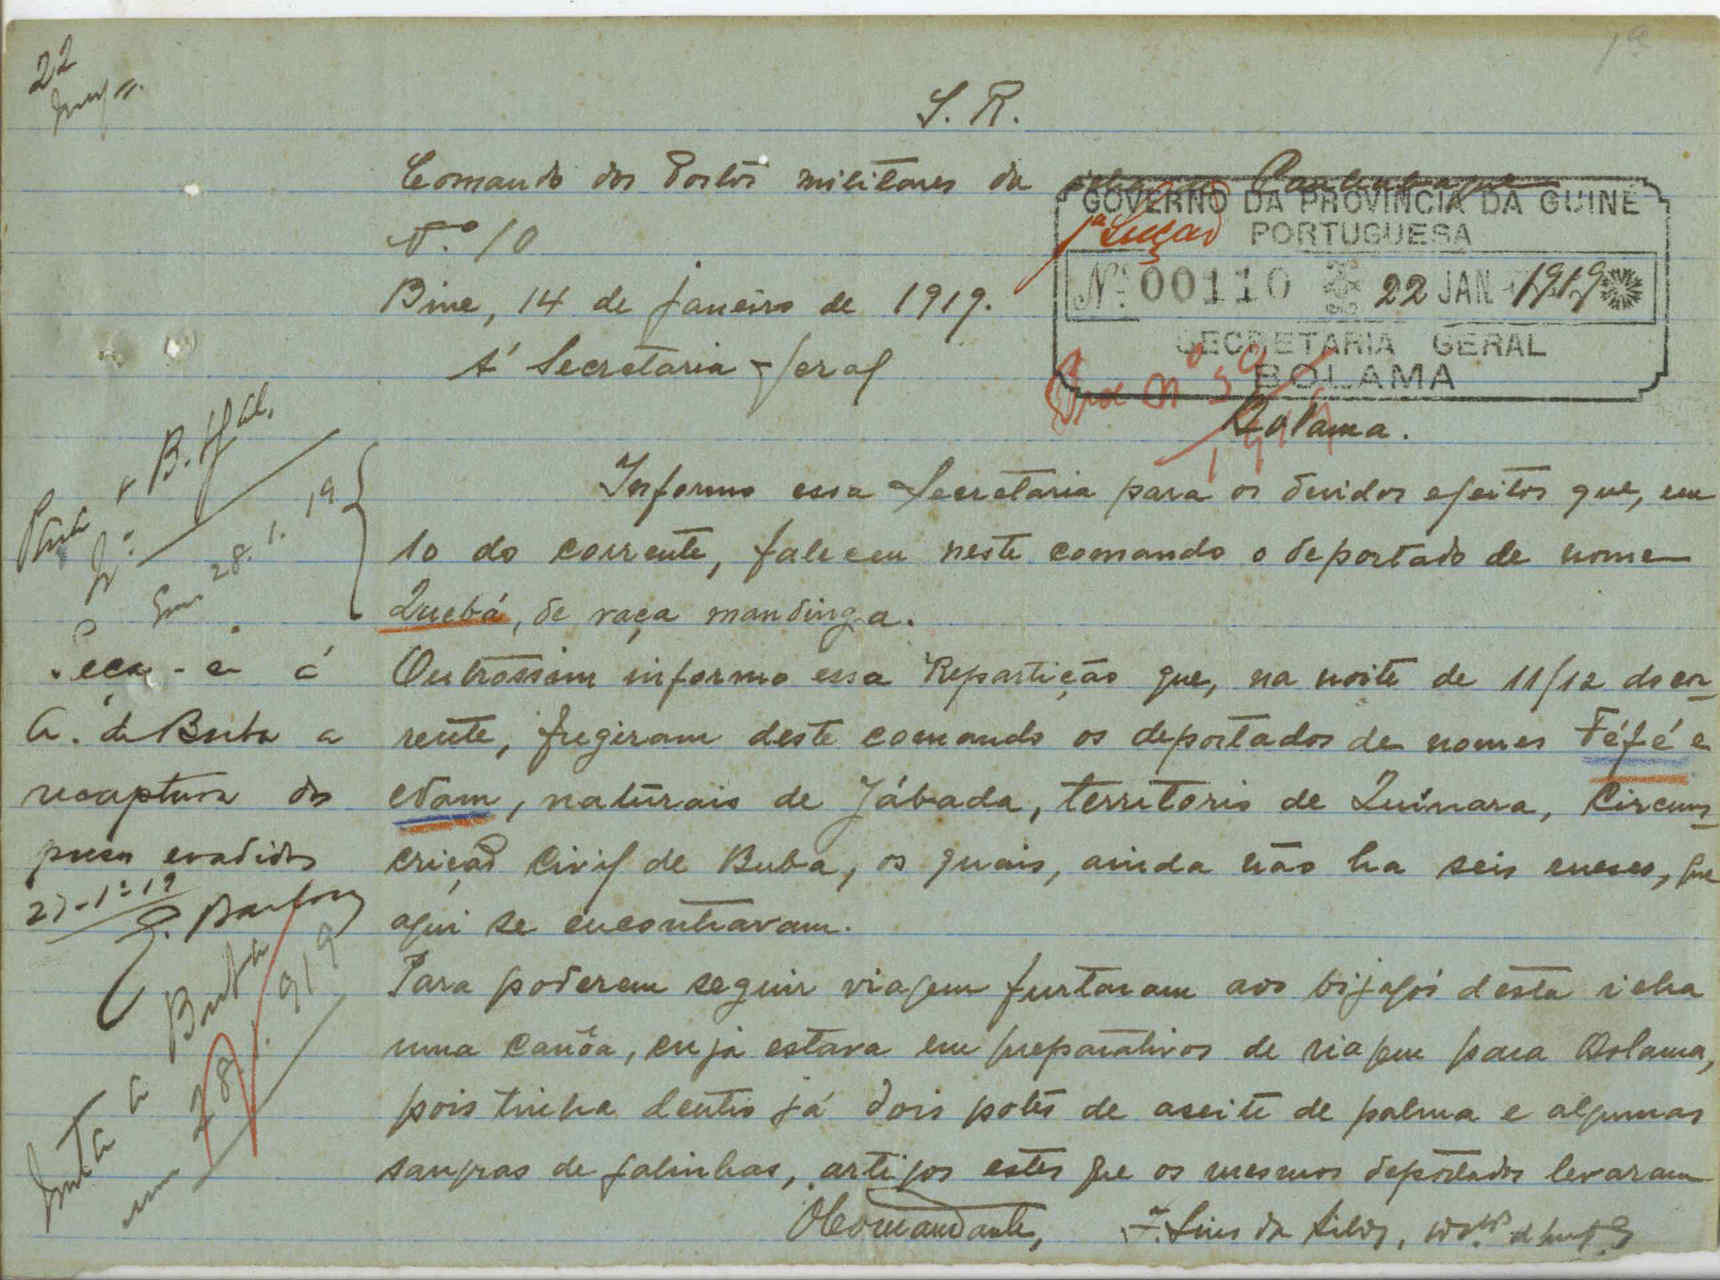 22
S. R.
Comando dos Postos militares da
N.º 10
GOVERNO DA PROVINCIA DA GUINÉ
PORTUGUESA
1ª Secção
Nº 00110 22 JAN 1919
SECRETARIA GERAL
BOLAMA
Bine, 14 de janeiro de 1919.
Á Secretaria Geral
Bolama.
Informo essa Secretaria para os devidos efeitos que, em
10 do corrente, faleceu neste comando o deportado de nome
Quebá, de raça mandinga.
Outrossim informo essa Repartição que, na noite de 11/12 do cor-
rente, fugiram deste comando os deportados de nomes Féfé e
Edam, naturais de Jábada, territorio de Quinara, Circuns-
crição Civil de Buba, os quais, ainda não ha seis meses, que
aqui se encontravam.
Para poderem seguir viagem furtaram aos bijagós desta ilha
uma canôa, cuja estava em preparativos de viagem para Bolama,
pois tinha dentro já dois potes de aseite de palma e algumas
sangras de galinhas, artigos estes que os mesmos deportados levaram
O Comandante,
Luis da Silva,
Em 28.1.19
Peça-se á
A. de Buba a
recaptura dos
presos evadidos
27-1º-19
Buba
28/1/919